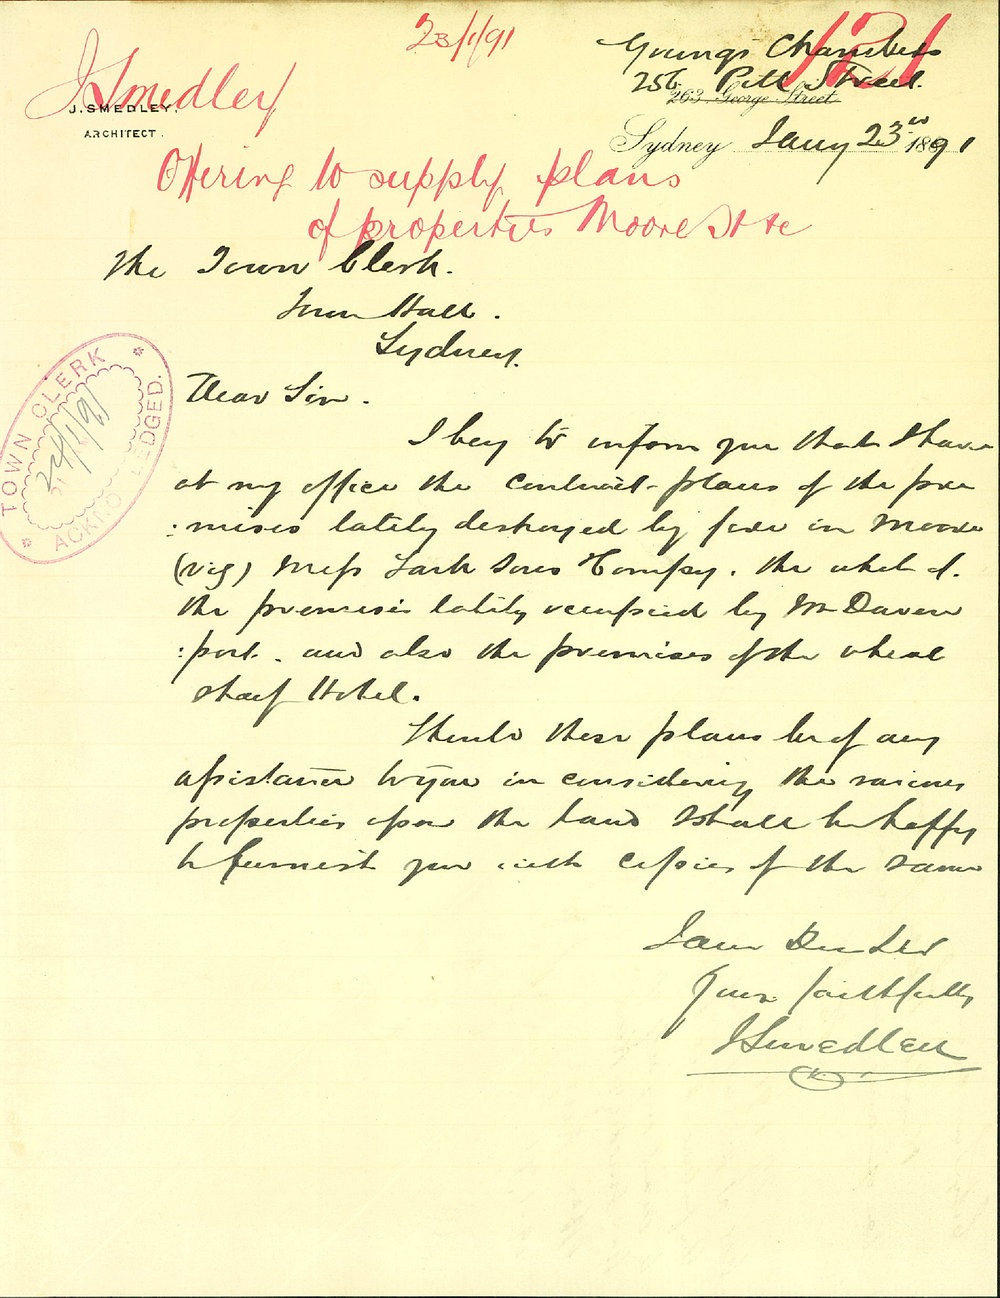 23/1/91
121
J Smedley
J. SMEDLEY,
ARCHITECT.
Youngs Chambers
256 Pitt Street.
263 George Street
Sydney Jany 23rd 1891
Offering to supply plans
of properties Moore St &c
The Town Clerk.
Town Hall.
Sydney.
Dear Sir.
TOWN CLERK
24/1/91
ACKNOWLEDGED.
I beg to inform you that I have
at my office the contract plans of the pre
:mises lately destroyed by fire in Moore
(viz) Messrs Lark Sons & Compy. the whole of
the premises lately occupied by Mr Daven
:port. and also the premises of the Wheat
Sheaf Hotel.
Should these plans be of any
assistance to you in considering the various
properties upon the land I shall be happy
to furnish you with copies of the same
I am Dear Sir
Yours faithfully
J Smedley